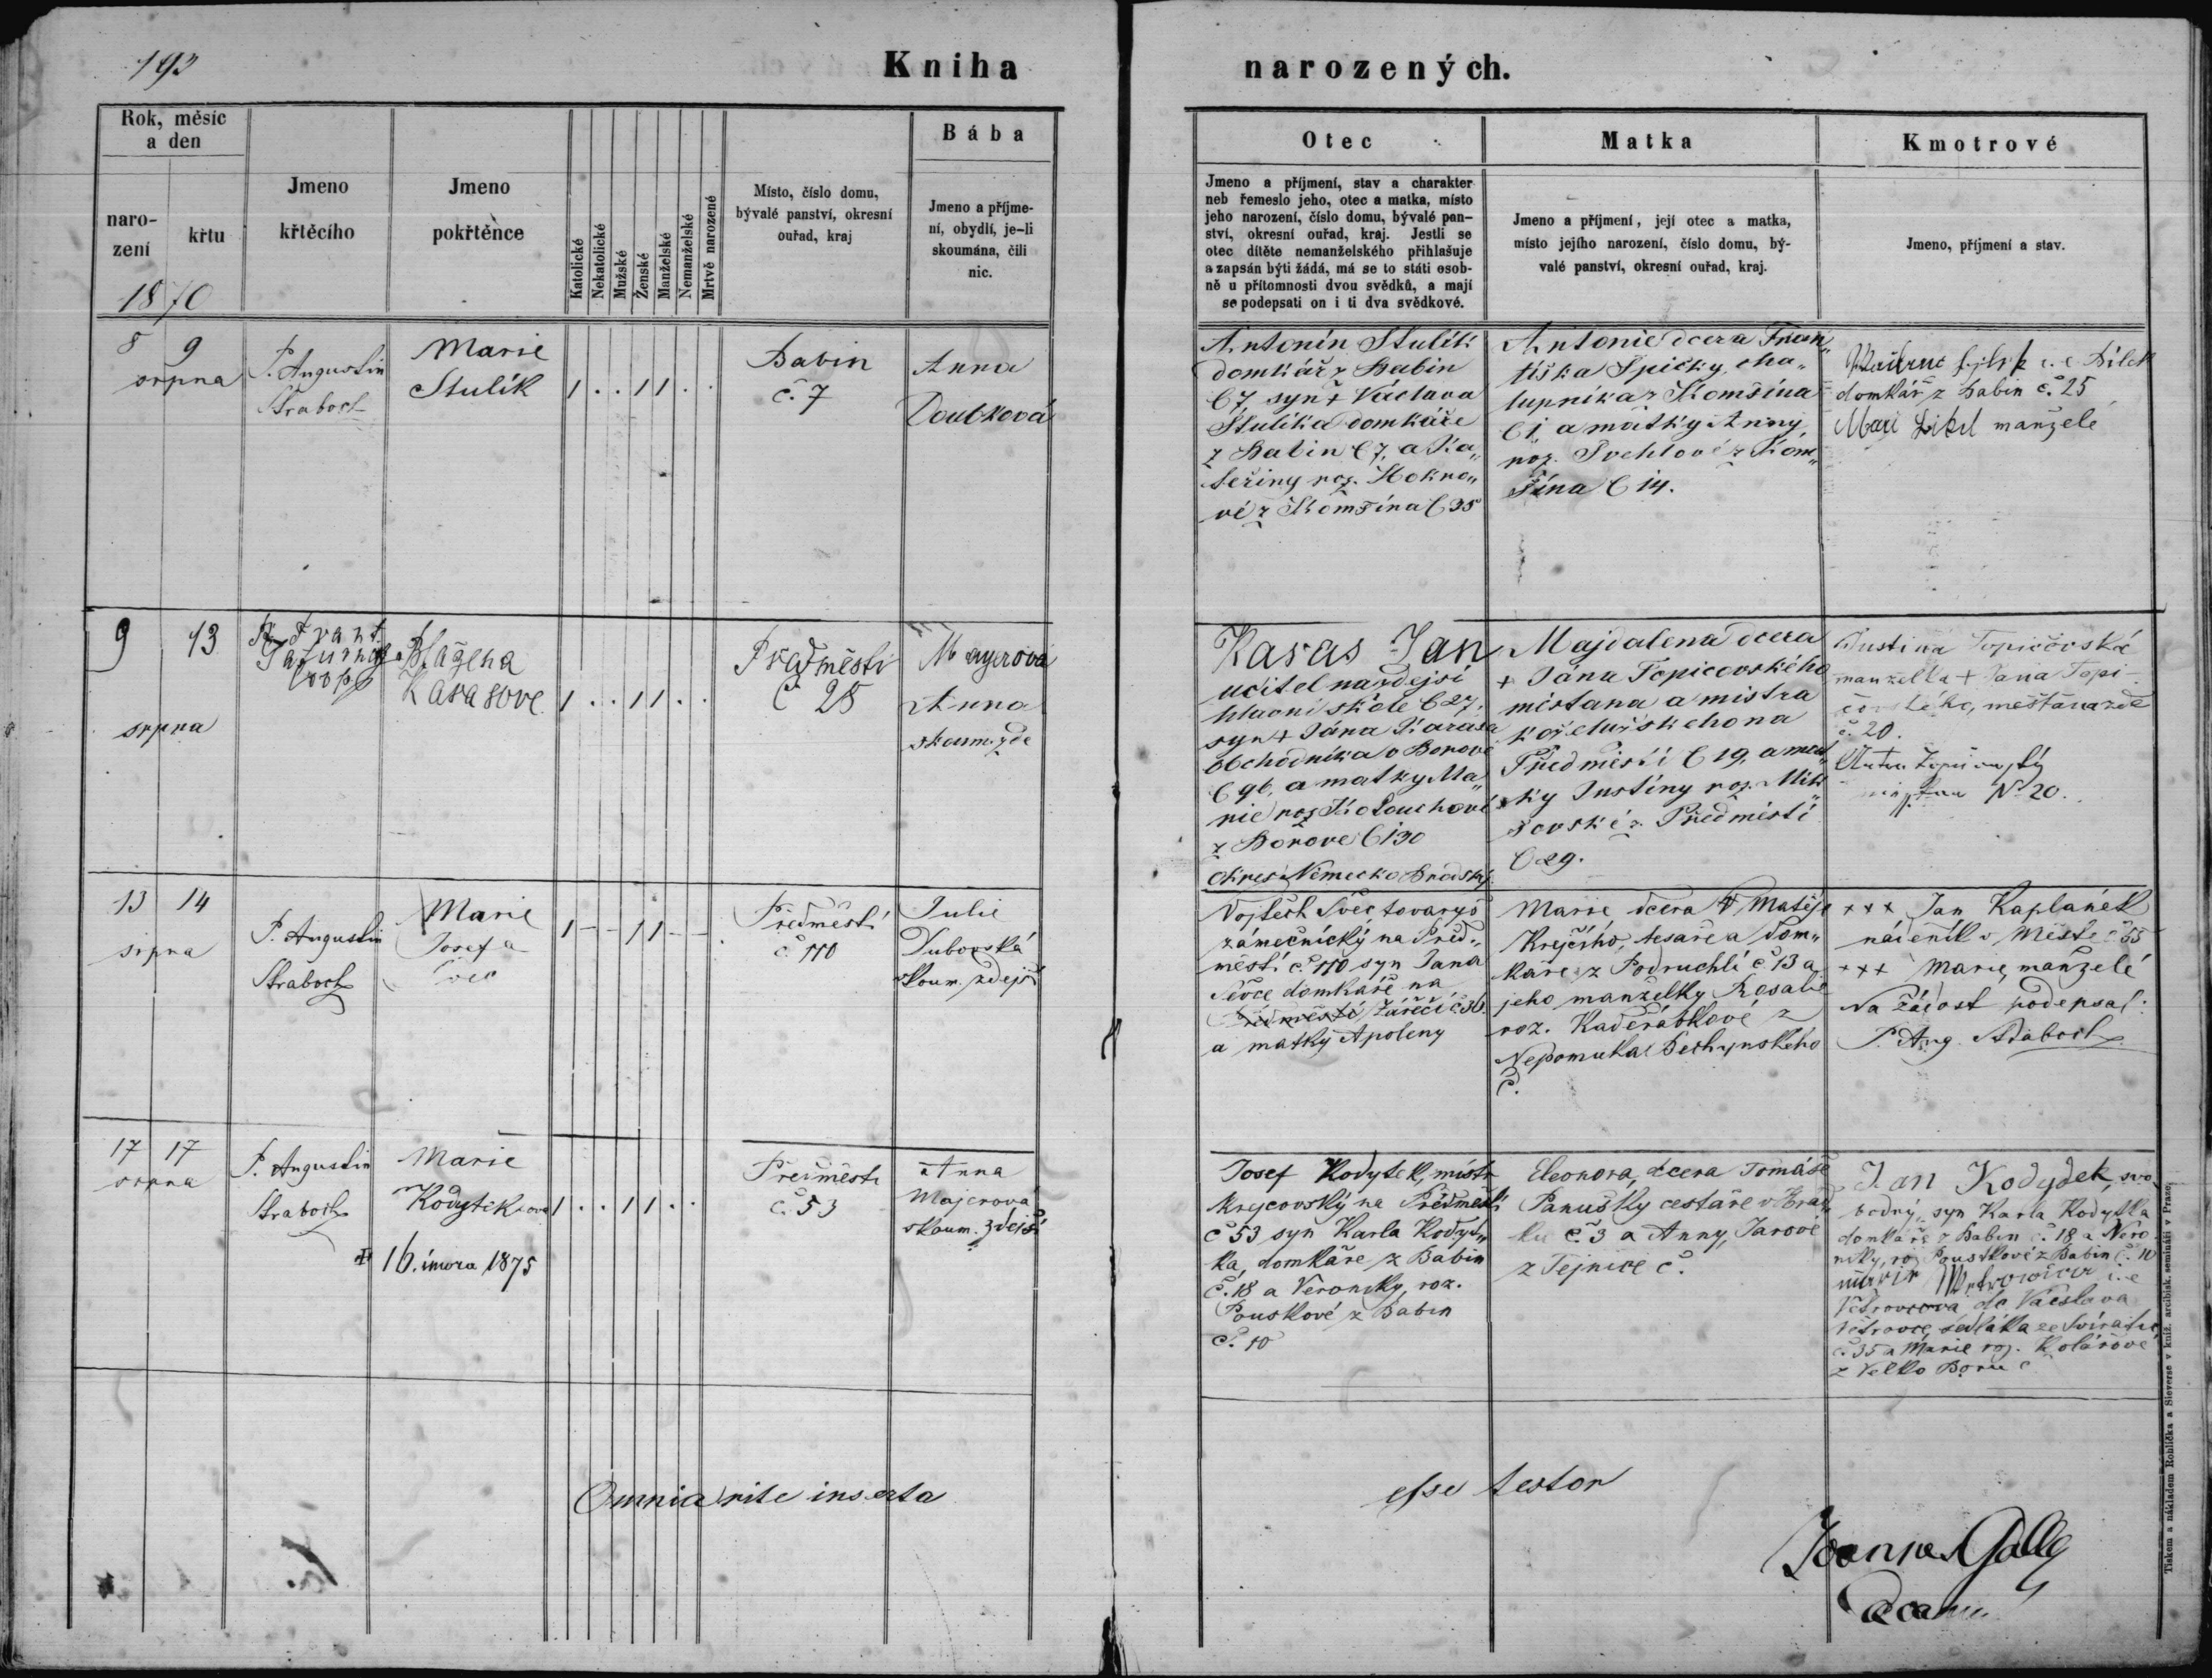 193
Kniha narozených.
Rok, měsíc a den
naro-
zení
křtu
1870
Jmeno
křtěcího
Jmeno
pokřtěnce
Katolické
Nekatolické
Mužské
Ženské
Manželské
Nemanželské
Mrtvě narozené
Místo, číslo domu,
bývalé panství, okresní
ouřad, kraj
Bába
Jmeno a příjme-
ní, obydlí, je-li
skoumána, čili
nic.
Otec
Jmeno a příjmení, stav a charakter
neb řemeslo jeho, otec a matka, místo
jeho narození, číslo domu, bývalé pan-
ství, okresní ouřad, kraj. Jestli se
otec dítěte nemanželského přihlašuje
a zapsán býti žádá, má se to státi osob-
ně u přítomnosti dvou svědků, a mají
se podepsati on i ti dva svědkové.
Matka
Jmeno a příjmení, její otec a matka,
místo jejího narození, číslo domu, bý-
valé panství, okresní ouřad, kraj.
Kmotrové
Jmeno, příjmení a stav.
8 9
srpna
P. Augustin
Straboch
Marie
Stulík
1 . . 1 1 . .
Babin
č. 7
Anna
Doubková
Antonín Stulík
domkář z Babin
č 7 syn + Václava
Stulíka domkáře
z Babin č 7, a Ka„
teřiny roz. Hokno„
vé z Komšína č 35
Antonie dcera Fran„
tiška Spičky, cha„
lupníka z Komšína
č 1, a matky Anny
roz. Švehlové z Kom„
šína č 14.
i. e. Bílek
domkář z Babin č. 25
manželé
9 13
srpna
P. Frant.
Blažena
Karasove
1 . . 1 1 . .
Předměstí
č 28
Mayerova
Anna
skoum. zde
Karas Jan
učitel na zdejší
hlavní škole č 27.
syn + Jána Karasa
obchodníka v Borové
č 96, a matky Ma„
rie roz. Kolouchové
z Borové č 130
okres Německo Brodský.
Majdalena dcera
+ Jána Topicovského
místana a mistra
koželužského na
Předměstí č 19, a mat„
ky Justiny roz. Mik„
šovské z Předměstí
č 29.
Justina Topičovská
manželka + Jana Topi-
čovského, měšťana zde
č. 20.
No 20.
13 14
srpna
P. Augustin
Straboch
Marie
Josefa
Švec
1 - - 1 1 - -
Předměstí
č. 110
Julie
Dubovská
skoum. zdejší
Vojtěch Švec, tovaryš
zámečnický na Před„
městí č. 110 syn Jana
Ševce domkáře na
Předměstí, Záříčí č. 36
a matky Apoleny
Marie, dcera + Matěje
Krejčího, tesaře a dom„
káře z Podruchlí č. 13 a
jeho manželky Rosalie
roz. Kadeřábkové z
Nepomuka Bechynského
č.
+++ Jan Kaplánek
nádeník v Městě č 55
+++ Marie, manželé
Na žádost podepsal:
P. Aug. Straboch
17 17
srpna
P. Augustin
Straboch
Marie
Kodytkova
+ 16. února 1875
1 . . 1 1 . .
Předměstí
č. 53
Anna
Majerová
skoum. zdejší
Josef Kodytek, mistr
krejcovský na Předměstí
č 53 syn Karla Kodyt„
ka, domkáře z Babin
č. 18 a Veroniky, roz.
Pouskové z Babin
č. 10
Eleonora, dcera Tomáše
Panušky cestáře v Hrád„
ku č. 3 a Anny, Jarové
z Tejnice č.
Jan Kodydek, svo
bodný, syn Karla Kodytka
domkáře z Babin č. 18 a Vero
niky, roz. Pouskové z Babin č. 10
i. e
Větrovcova, dc Václava
Větrovce, sedláka ze Svíratic
č. 35 a Marie roz. Kolářové
z Velko Boru č
Omnia rite inserta esse testor
Joannes Gally
Tiskem a nákladem Rohlíčka a Sieverse v kníž. arcibisk. semináři v Praze.